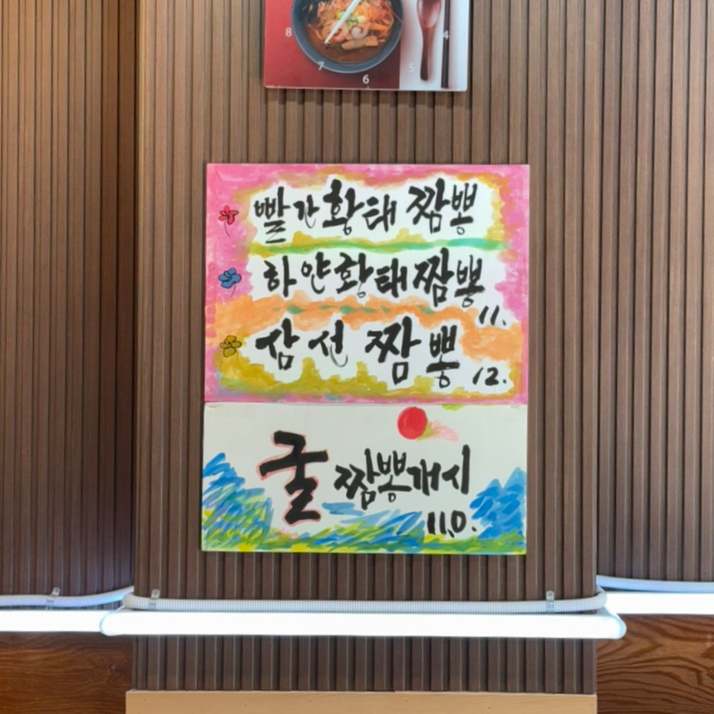 8
7
6
5
4
빨간황태짬뽕
하얀황태짬뽕
11.
삼선 짬뽕 12.
굴 짬뽕개시
11.0.